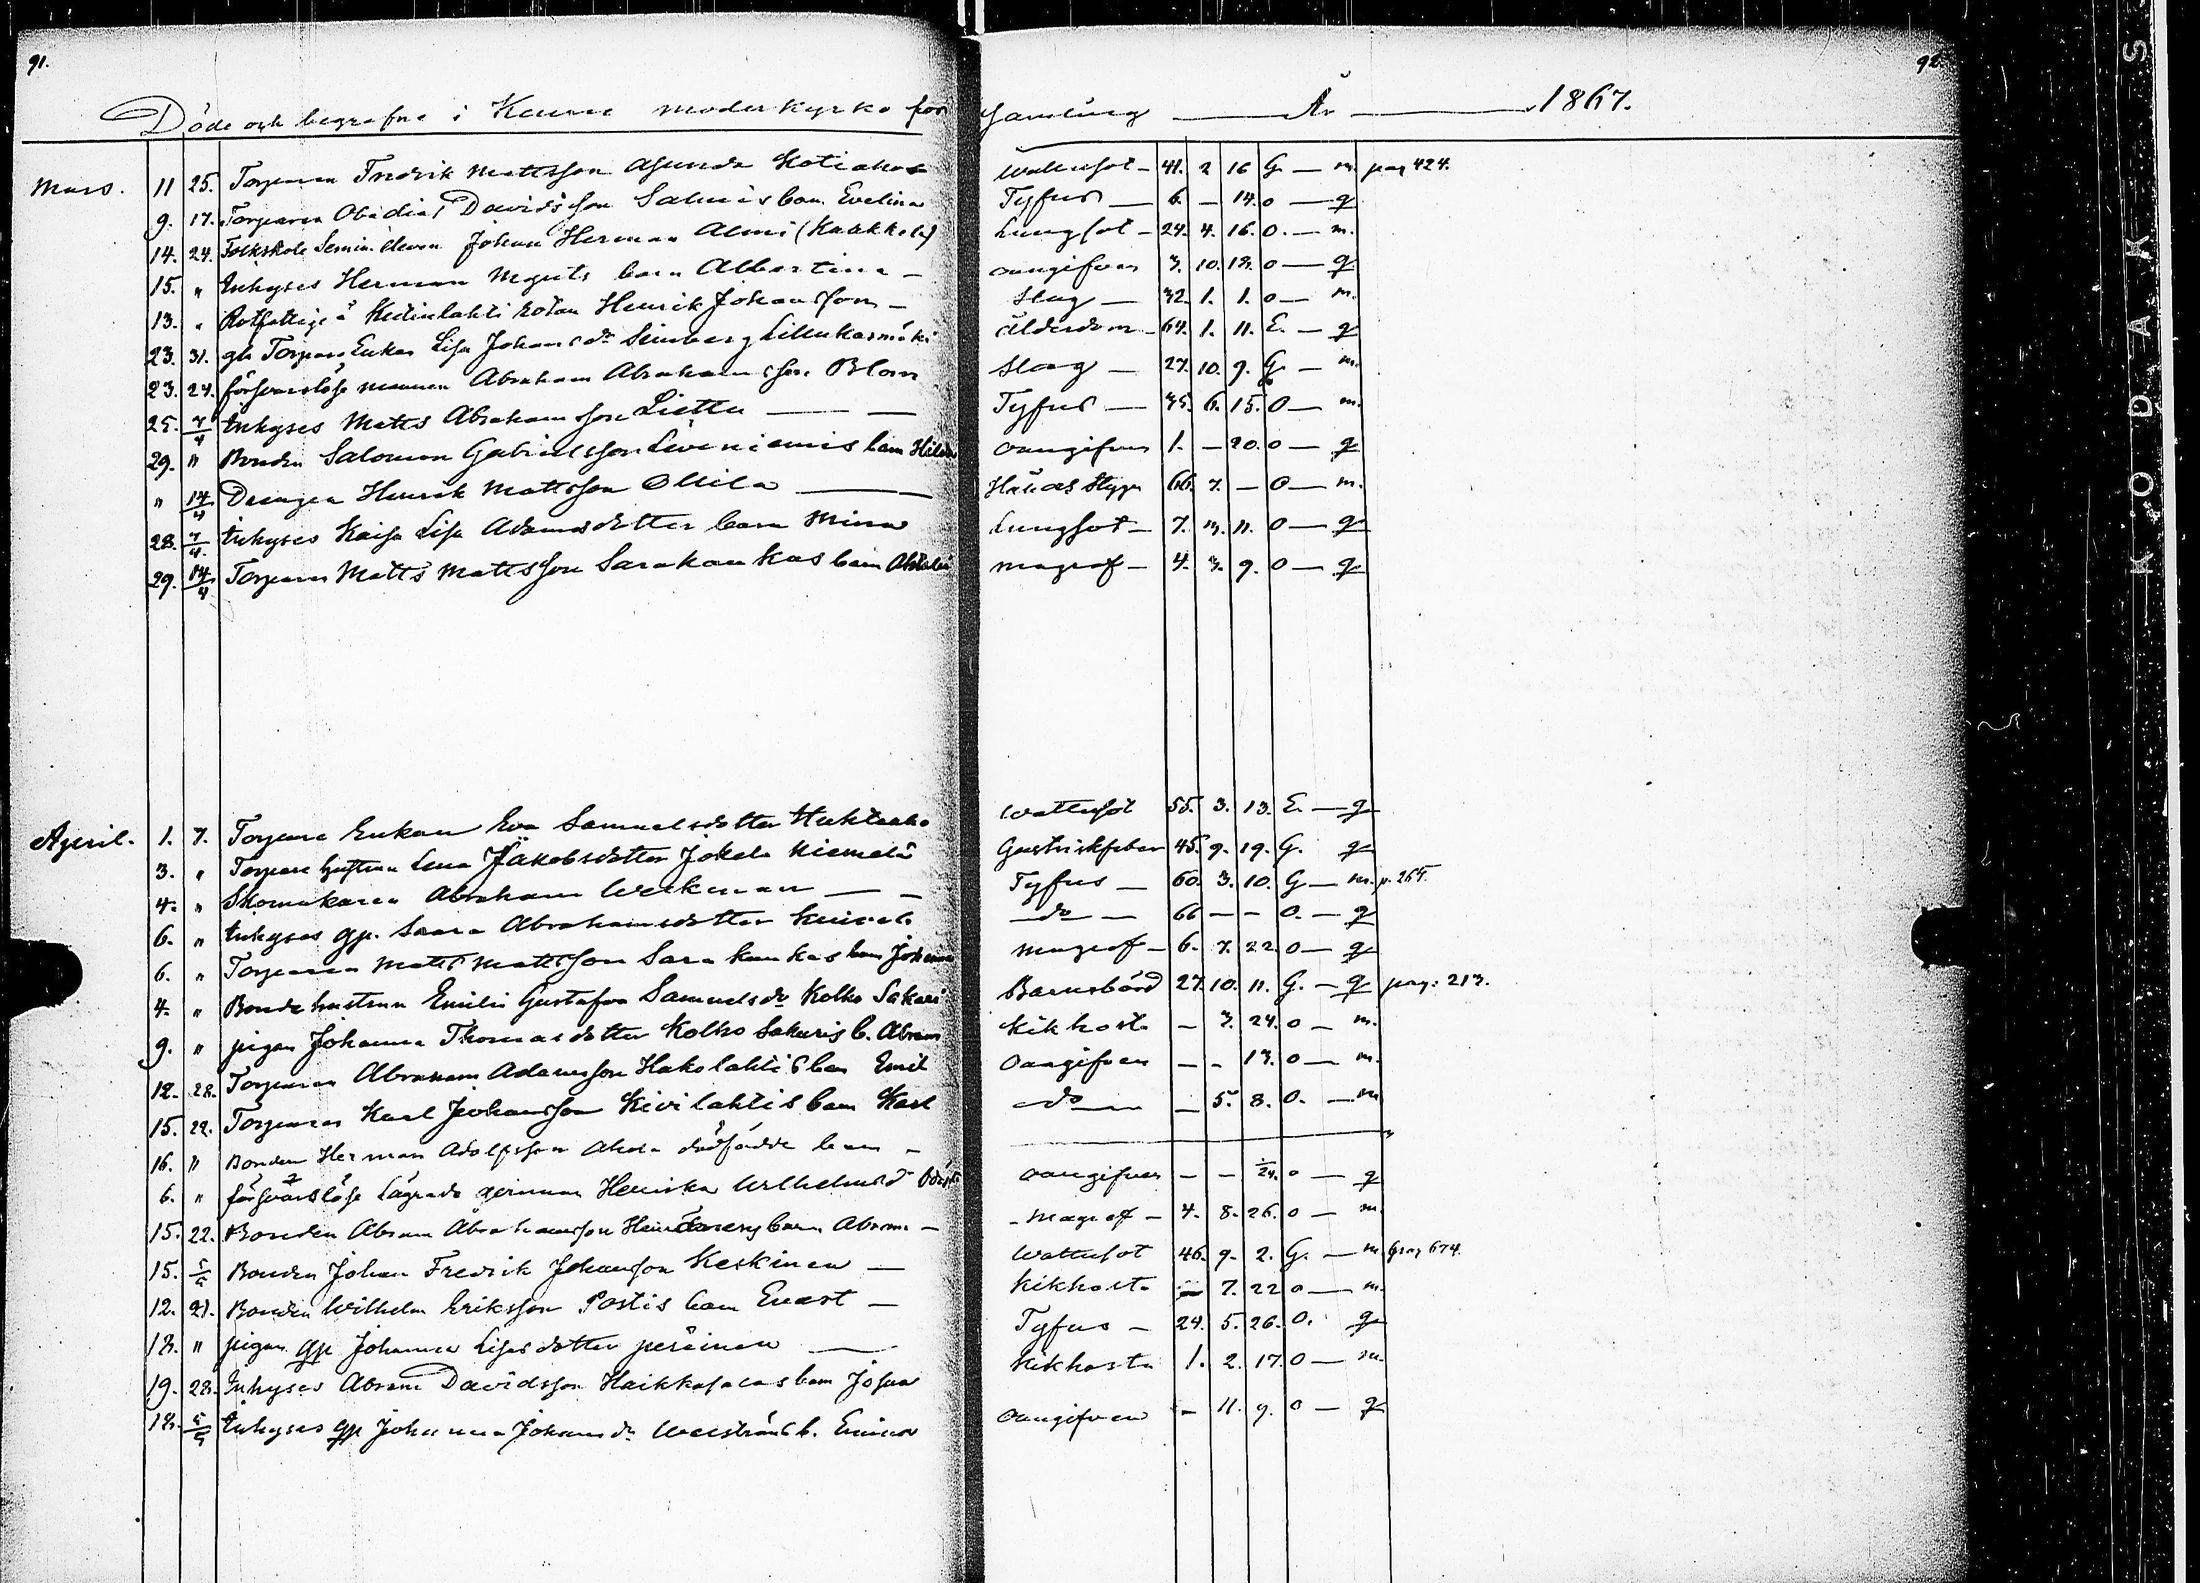 91.
92
Döde och begrafne i Keuru moderkyrko församling År 1867.
Mars. 11 25. Torparen Fredrik Mattsson Asunda Kotiaho Wattusot 41. 2 16 G. m. pag 424.
9. 17. Torparen Obadias Davidsson Salmis barn Evelina Tyfus 6. - 14. o q
14. 24. Folkskole Semin. eleven Johan Herman Almi (Kaakkola) Lungsot 24. 4. 16. O. m.
15. " Inhyses Herman barn Albertina oangifven 3. 10. 12. o q
13. " Rotfattige å rotan Henrik Johansson Slag 32. 1. 1. o m.
23. 31. gla Torpare Enkan Lisa Johansdr Lillukasmäki ålderdom 64. 1. 11. E. q
23. 24. försvarslöse mannen Abraham Abrahamsson Blom Slag 27. 10. 9. G m.
25. 7/4 Inhyses Matts Abrahamsson Liettu Tyfus 35. 6. 15. O m.
29. " Bonden Salomon Gabrielsson Liveniemis barn Hilda oangifven 1. - 20. o q
" 14/4 Drengen Henrik Mattsson Ollila Håll och Stygn 66. 7. - O m.
28. 7/4. Inhyses Kaisa Lisa Adamsdotter barn Mina Lungsot 7. 11. O q
29. 14/4 Torparen Matts Mattsson Sarakankas barn magref 4. 3. 9. O q
April. 1. 7. Torpare Enkan Eva Samuelsdotter Huhtaaho Wattusot 55. 3. 13. E. q
3. " Torpare hustrun Lena Jakobsdotter Jokela Niemelä Gastriskfeber 45. 9. 19. G. q
4. " Skomakaren Abraham Werkman Tyfus 60. 3. 10. G m. p. 265.
6. " Inhyses gp. Saara Abrahamsdotter do 66 - - O. q
6. " Torparen Matts Mattsson Sarakankas barn Johanna magref 6. 7. 22. O q
4. " Bonde hustrun Emilia Gustafva Samuelsdr Kolho Sakari Barnsbörd 27. 10. 11. G. q pag. 213.
9. " pigan Johanna Thomasdotter Kolho Sakaris b. Abram Kikhosta - 7. 24. o m.
12. 28. Torparen Abraham Adamsson Hakolahtis barn Emil oangifven - - 13. o m.
15. 22. Torparen Karl Johansson Kivilahtis barn Karl do - 5. 8. O. m
16. " Bonden Herman Adolfsson Ahola dödfödde barn
6. " försvarslöse lägrade qvinnan Henrika Wilhelmsdr oangifven - - 1/24. o q
15. 22. Bonden Abram Abrahamsson barn Abram magref 4. 8. 26. o m.
15. 5/5 Bonden Johan Fredrik Johansson Keskinen Wattusot 46. 9. 2. G. m pag 674.
12. 21. Bonden Wilhelm Eriksson Postis barn Evert Kikhosta - 7. 22 o m.
12. " pigan gp Johanna Lisasdotter peräinen Tyfus 24. 5. 26. O. q
19. 22. Inhyses Abram Davidsson Haikkasalos barn Josua Kikhosta 1. 2. 17. O m.
12. 5/5 Inhyses gp Johanna Johansdr b. Emma oangifven - 11. 9. o q
KODAK S